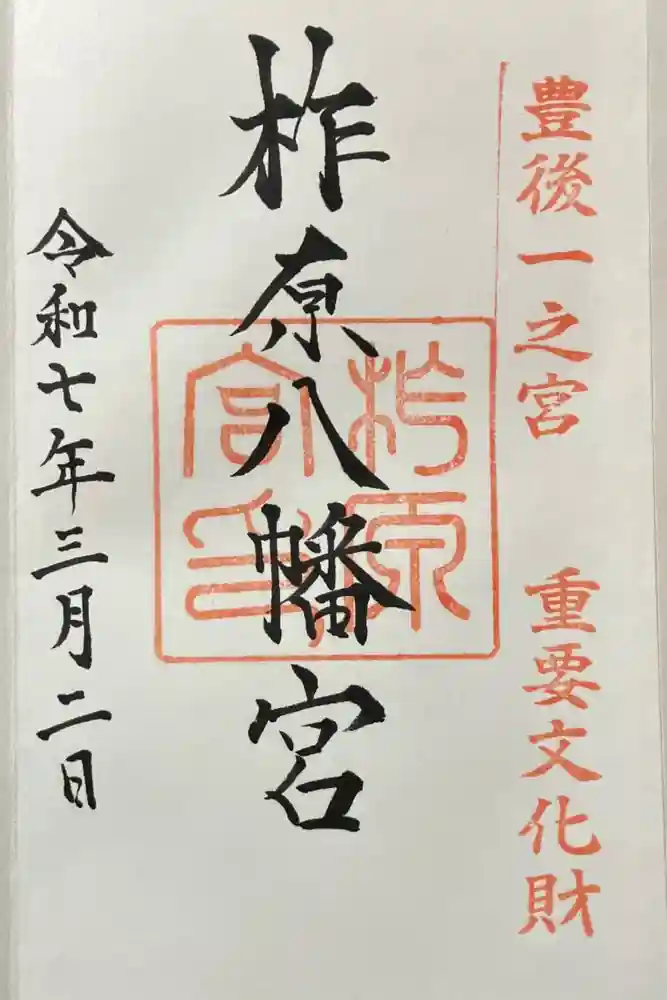 豊後一之宮 重要文化財
柞原八幡宮
柞原宮印
令和七年三月二日